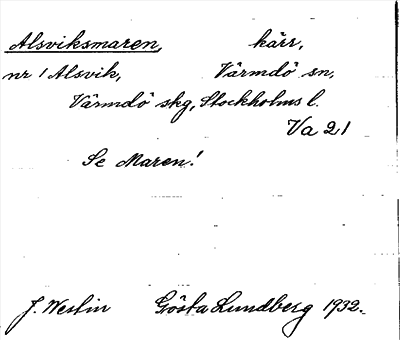 Alsviksmaren, kärr,
nr 1 Alsvik, Värmdö sn,
Värmdö skg, Stockholms l.
Va 21
Se Maren!
J. Westin Gösta Lundberg 1932.